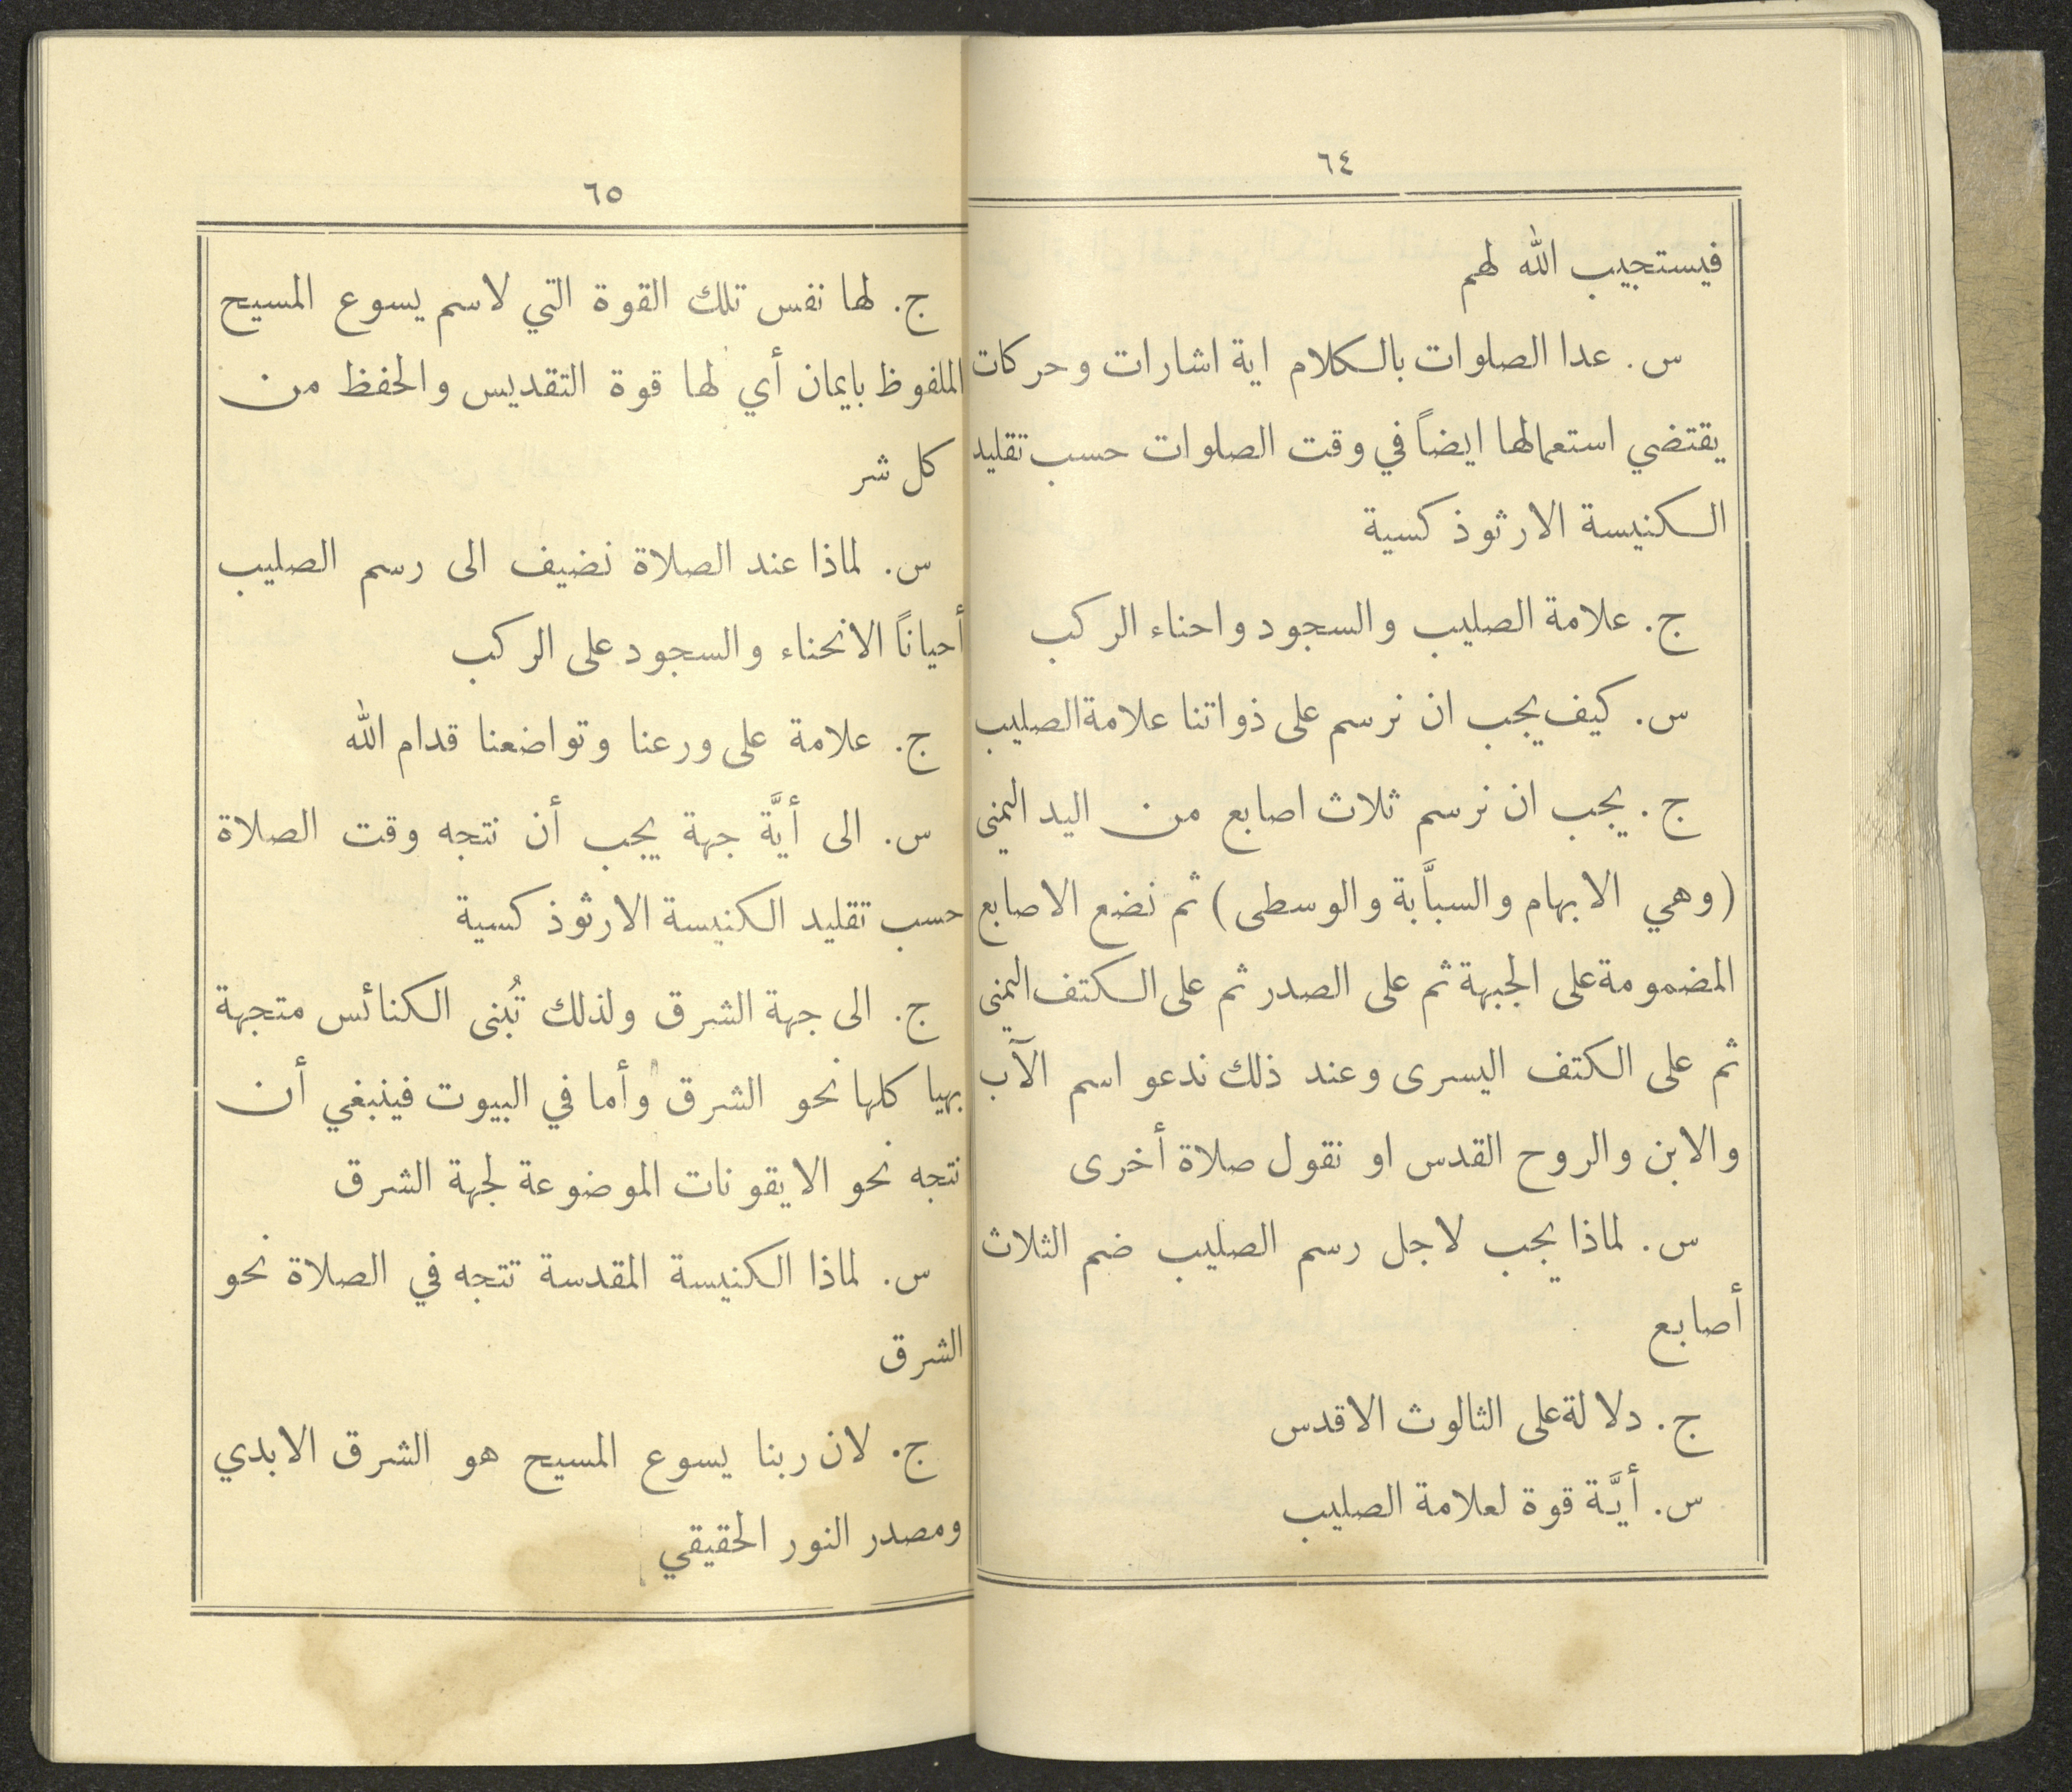 ٦٤
فيستجيب الله لهم
س. عدا الصلوات بالكلام اية اشارات وحركات
يقتضي استعمالها ايضاً في وقت الصلوات حسب تقليد
الكنيسة الارثوذكسية
ج. علامة الصليب والسجود واحناء الركب
س. كيف يجب ان نرسم على ذواتنا علامة الصليب
ج. يجب ان نرسم ثلاث اصابع من اليد اليمنى
(وهي الابهام والسبَّابة والوسطى) ثم نضع الاصابع
المضمومة على الجبهة ثم على الصدر ثم على الكتف اليمنى
ثم على الكتف اليسرى وعند ذلك ندعو اسم الآب
والابن والروح القدس او نقول صلاة أخرى
س. لماذا يجب لاجل رسم الصليب ضم الثلاث
أصابع
ج. دلالة على الثالوث الاقدس
س. أيَّة قوة لعلامة الصليب
٦٥
ج. لها نفس تلك القوة التي لاسم يسوع المسيح
الملفوظ بايمان أي لها قوة التقديس والحفظ من
كل شر
س. لماذا عند الصلاة نضيف الى رسم الصليب
أحياناً الانحناء والسجود على الركب
ج. علامة على ورعنا وتواضعنا قدام الله
س. الى أيَّة جهة يجب أن نتجه وقت الصلاة
حسب تقليد الكنيسة الارثوذكسية
ج. الى جهة الشرق ولذلك تُبنى الكنائس متجهة
بهيا كلها نحو الشرق وأما في البيوت فينبغي أن
نتجه نحو الايقونات الموضوعة لجهة الشرق
س. لماذا الكنيسة المقدسة تتجه في الصلاة نحو
الشرق
ج. لان ربنا يسوع المسيح هو الشرق الابدي
ومصدر النور الحقيقي